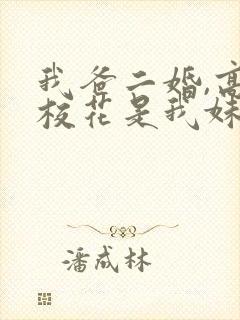 我爸二婚,高
校花是我妹
潘成林